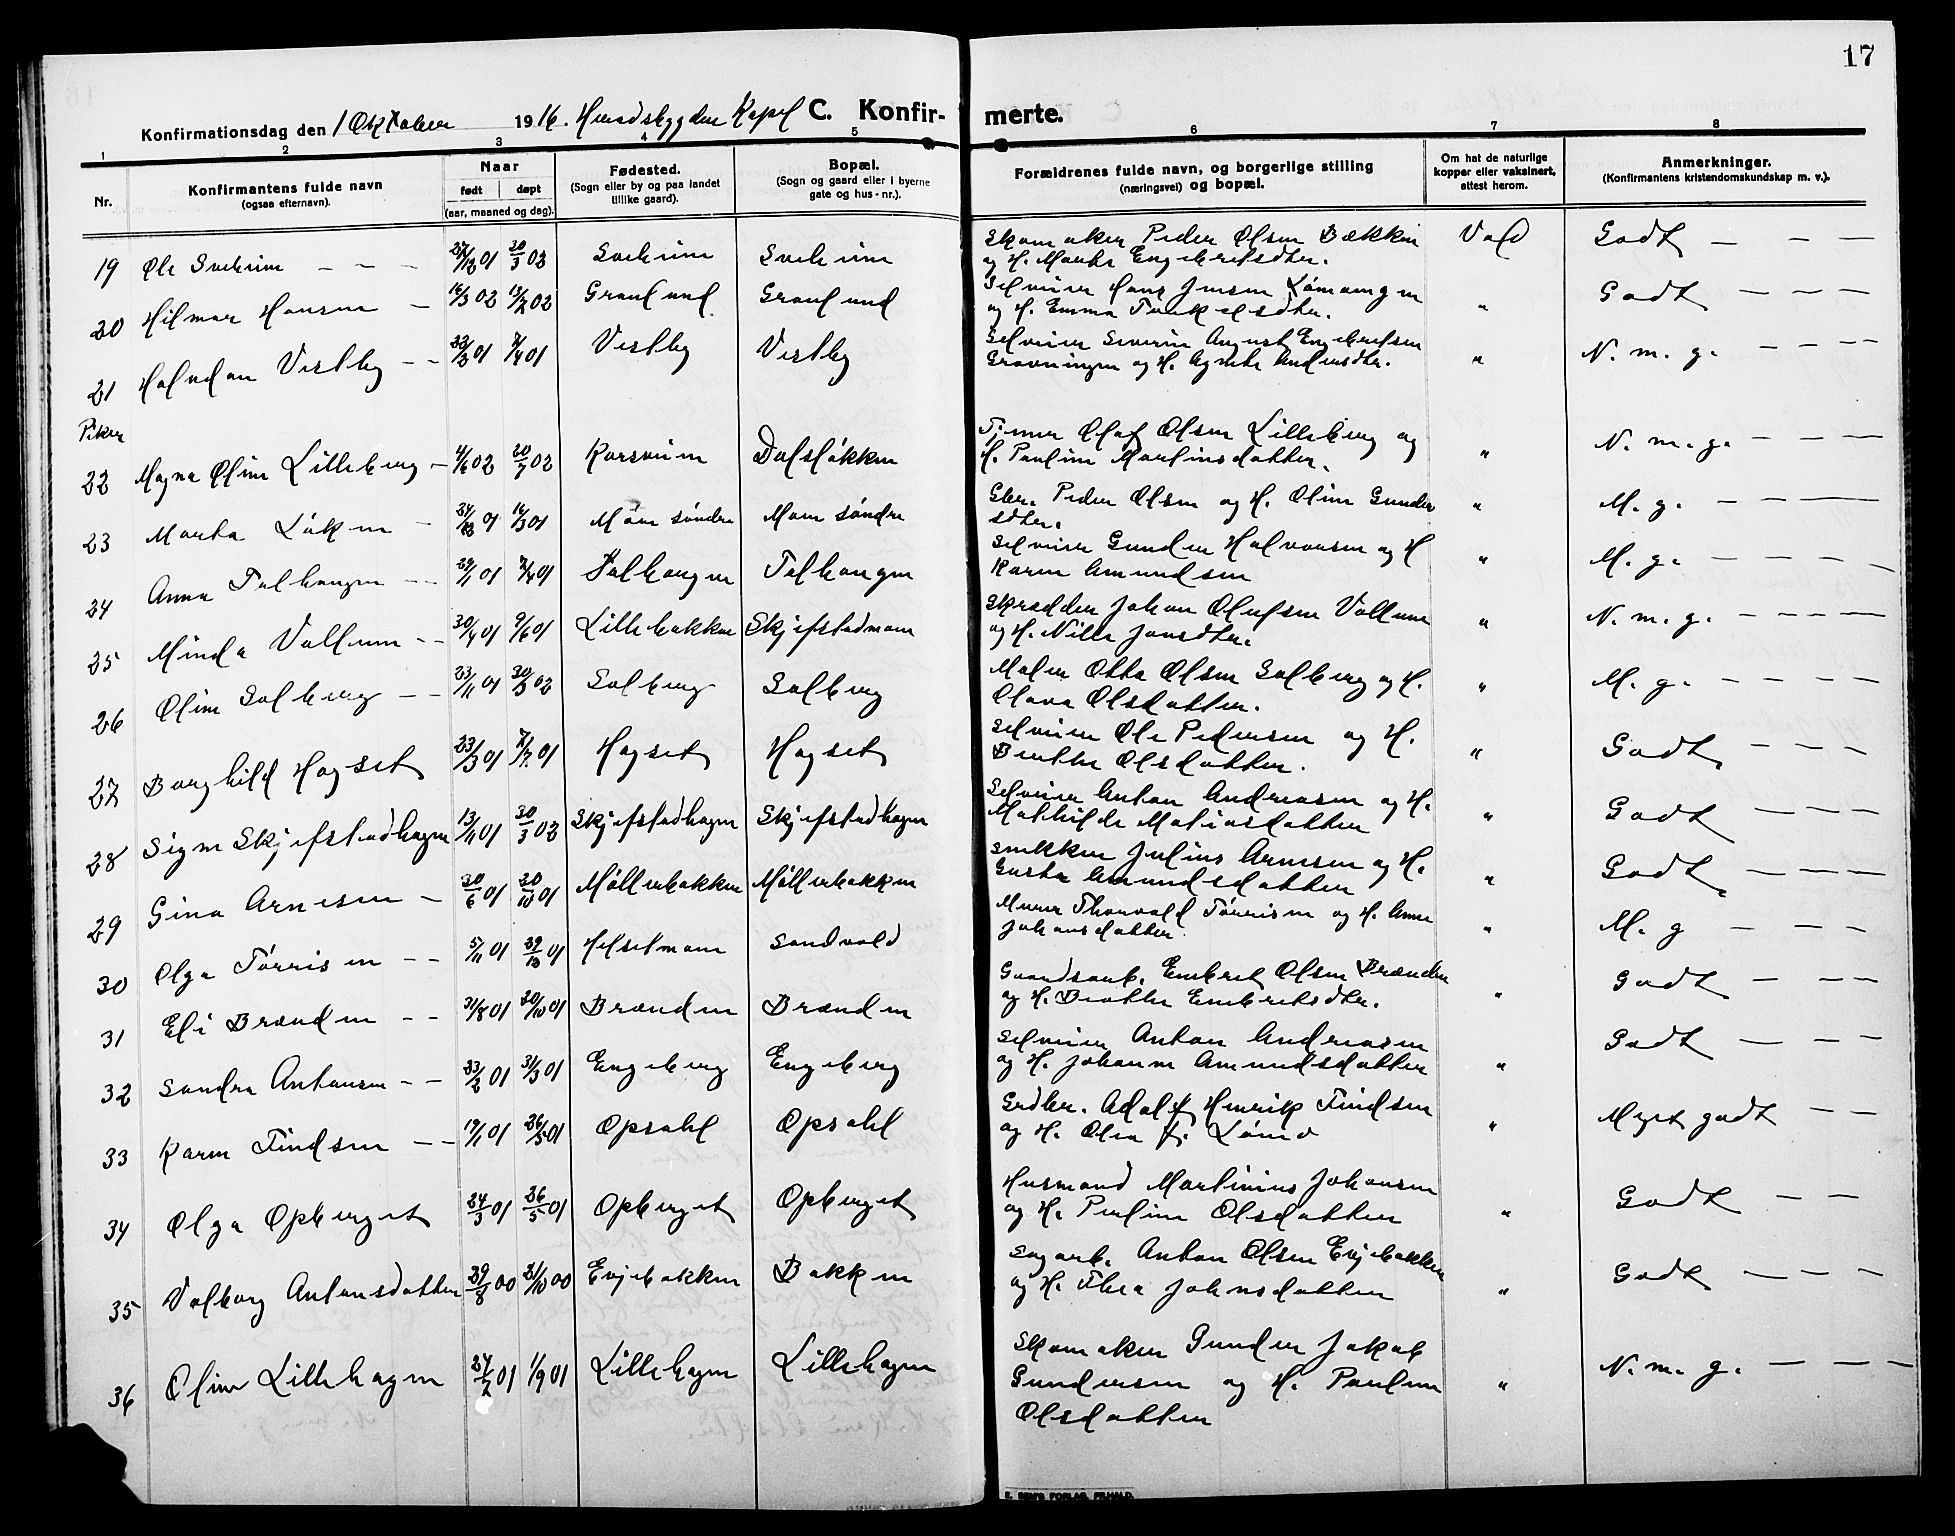 17
Konfirmationsdag den 1 Oktober 1916. Hurdsbygden Kapel C. Konfir- merte.
1 2 3 4 5 6 7 8
Nr.
Konfirmantens fulde navn
(ogsaa efternavn).
Naar
født døpt
(aar, maaned og dag).
Fødested.
(Sogn eller by og paa landet
tillike gaard).
Bopæl.
(Sogn og gaard eller i byerne
gate og hus-nr.).
Forældrenes fulde navn, og borgerlige stilling
(næringsvei) og bopæl.
Om hat de naturlige
kopper eller vaksinert,
attest herom.
Anmerkninger.
(Konfirmantens kristendomskundskap m. v.).
19 Ole Sveheim — — — 01 30/3 02 Sveheim Sveheim Skomaker Peder Olsen Bækken Vad Godt — — —
og H. Marthe Engebretsdtr.
20 Hilmar Hansen — 16/3 02 02 Granlund Granlund Selveier Hans Jensen
og H. Emma Torkelsdtr. " Godt — — —
21 Halvdan Vestby — — 01 7/4 01 Vestby Vestby Selveier Severin August Engebretsen
Gravningen og H. Agnethe Andersdtr. " N. m. g. — — —
Piker
22 Magna Oline Lilleberg — 4/6 02 20/7 02 Korsveien Dalsløkken Olaf Olsen Lilleberg og
H. Pauline Martinsdatter. " N. m. g. — — —
23 Marta Løken — 01 01 Moen søndre Moen søndre Gbr. Peder Olsen og H. Oline Gunder
sdtr. " M. g. — — —
24 Anna Falhaugen — — 01 01 Falhaugen Falhaugen Selveier Gunder Halvorsen og H
Karen Amundsen " M. g. — — — —
25 Minda Vollum — — 30/4 01 9/6 01 Lillebakken Skjefstadmoen Skrædder Johan Olufsen Vollum
og H. Nille Jensdtr. " N. m. g. — — — —
26 Oline Solberg — — 23/11 01 30/3 02 Solberg Solberg Maler Otto Olsen Solberg og H.
Olava Olsdatter. " M. g. — — — —
27 Borghild Hogset 23/3 01 7/7 01 Hogset Hogset Selveier Ole Pedersen og H.
Berthe Olsdatter. " Godt — — —
28 Signe Skjefstadhagen 13/11 01 30/3 02 Skjefstadhagen Skjefstadhagen Selveier Anton Andreasen og H.
Mathilde Matiasdatter " Godt — — —
29 Gina Arnesen — 30/6 01 20/10 01 Møllerbakken Møllerbakken Snekker Julius Arnesen og H.
Gusta Amundsdatter " Godt — — —
30 Olga Tørrisen — — 5/11 01 29/12 01 Helsetmoen Sandvold Murer Thorvald Tørrisen og H. Anna
Johansdatter. " M. g — — —
31 Eli Brænden — — 31/8 01 20/10 01 Brænden Brænden Gaardsarb. Embret Olsen Brænden
og H. Berthe Embretsdtr. " Godt — — —
32 Sandra Antonsen — — 01 31/3 01 Engeberg Engeberg Selveier Anton Andreasen
og H. Johanne Amundsdatter " Godt — — —
33 Karen Findsen — — 19/1 01 26/5 01 Opsahl Opsahl Grdbr. Adolf Henrik Findsen
og H. Olea f. " Meget godt — —
34 Olga Opberget 24/3 01 26/5 01 Opberget Opberget Husmand Martinius Johansen
og H. Pauline Olsdatter " Godt — —
35 Valborg Antonsdatter 29/8 00 21/10 00 Evjebakken Bakken Sagarb. Anton Olsen Evjebakken
og H. Thea Johnsdatter " Godt — — —
36 Oline Lillehagen 01 1/9 01 Lillehagen Lillehagen Skomaker Gunder Jakob
Gundersen og H. Pauline
Olsdatter " N. m. g. — — —